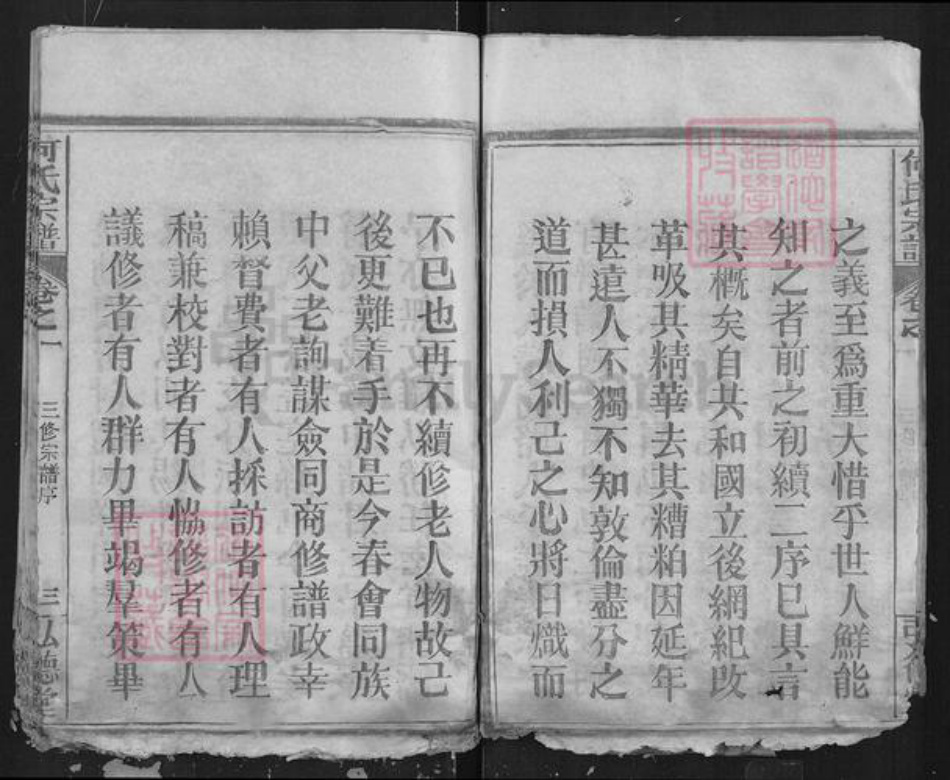 何氏宗譜
之義至爲重大惜乎世人鮮能
知之者前之初續二序已具言
其槪矣自共和國立後網紀改
革吸其精華去其糟粕因延年
甚遠人不獨不知敦倫盡分之
道而損人利己之心將日熾而
不已也再不續修老人物故己
後更難着手於是今春會同族
中父老詢謀僉同商修譜政幸
賴督費者有人採訪者有人理
稿兼校對者有人恊修者有人
議修者有人群力畢竭羣策畢
何氏宗譜
卷之一
三修宗譜序
三
弘德堂